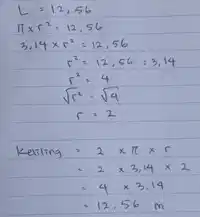 L = 12,56
π x r² = 12,56
3,14 x r² = 12,56
r² = 12,56 : 3,14
r² = 4
√r² = √4
r = 2
Keliling = 2 x π x r
= 2 x 3,14 x 2
= 4 x 3,14
= 12,56 m